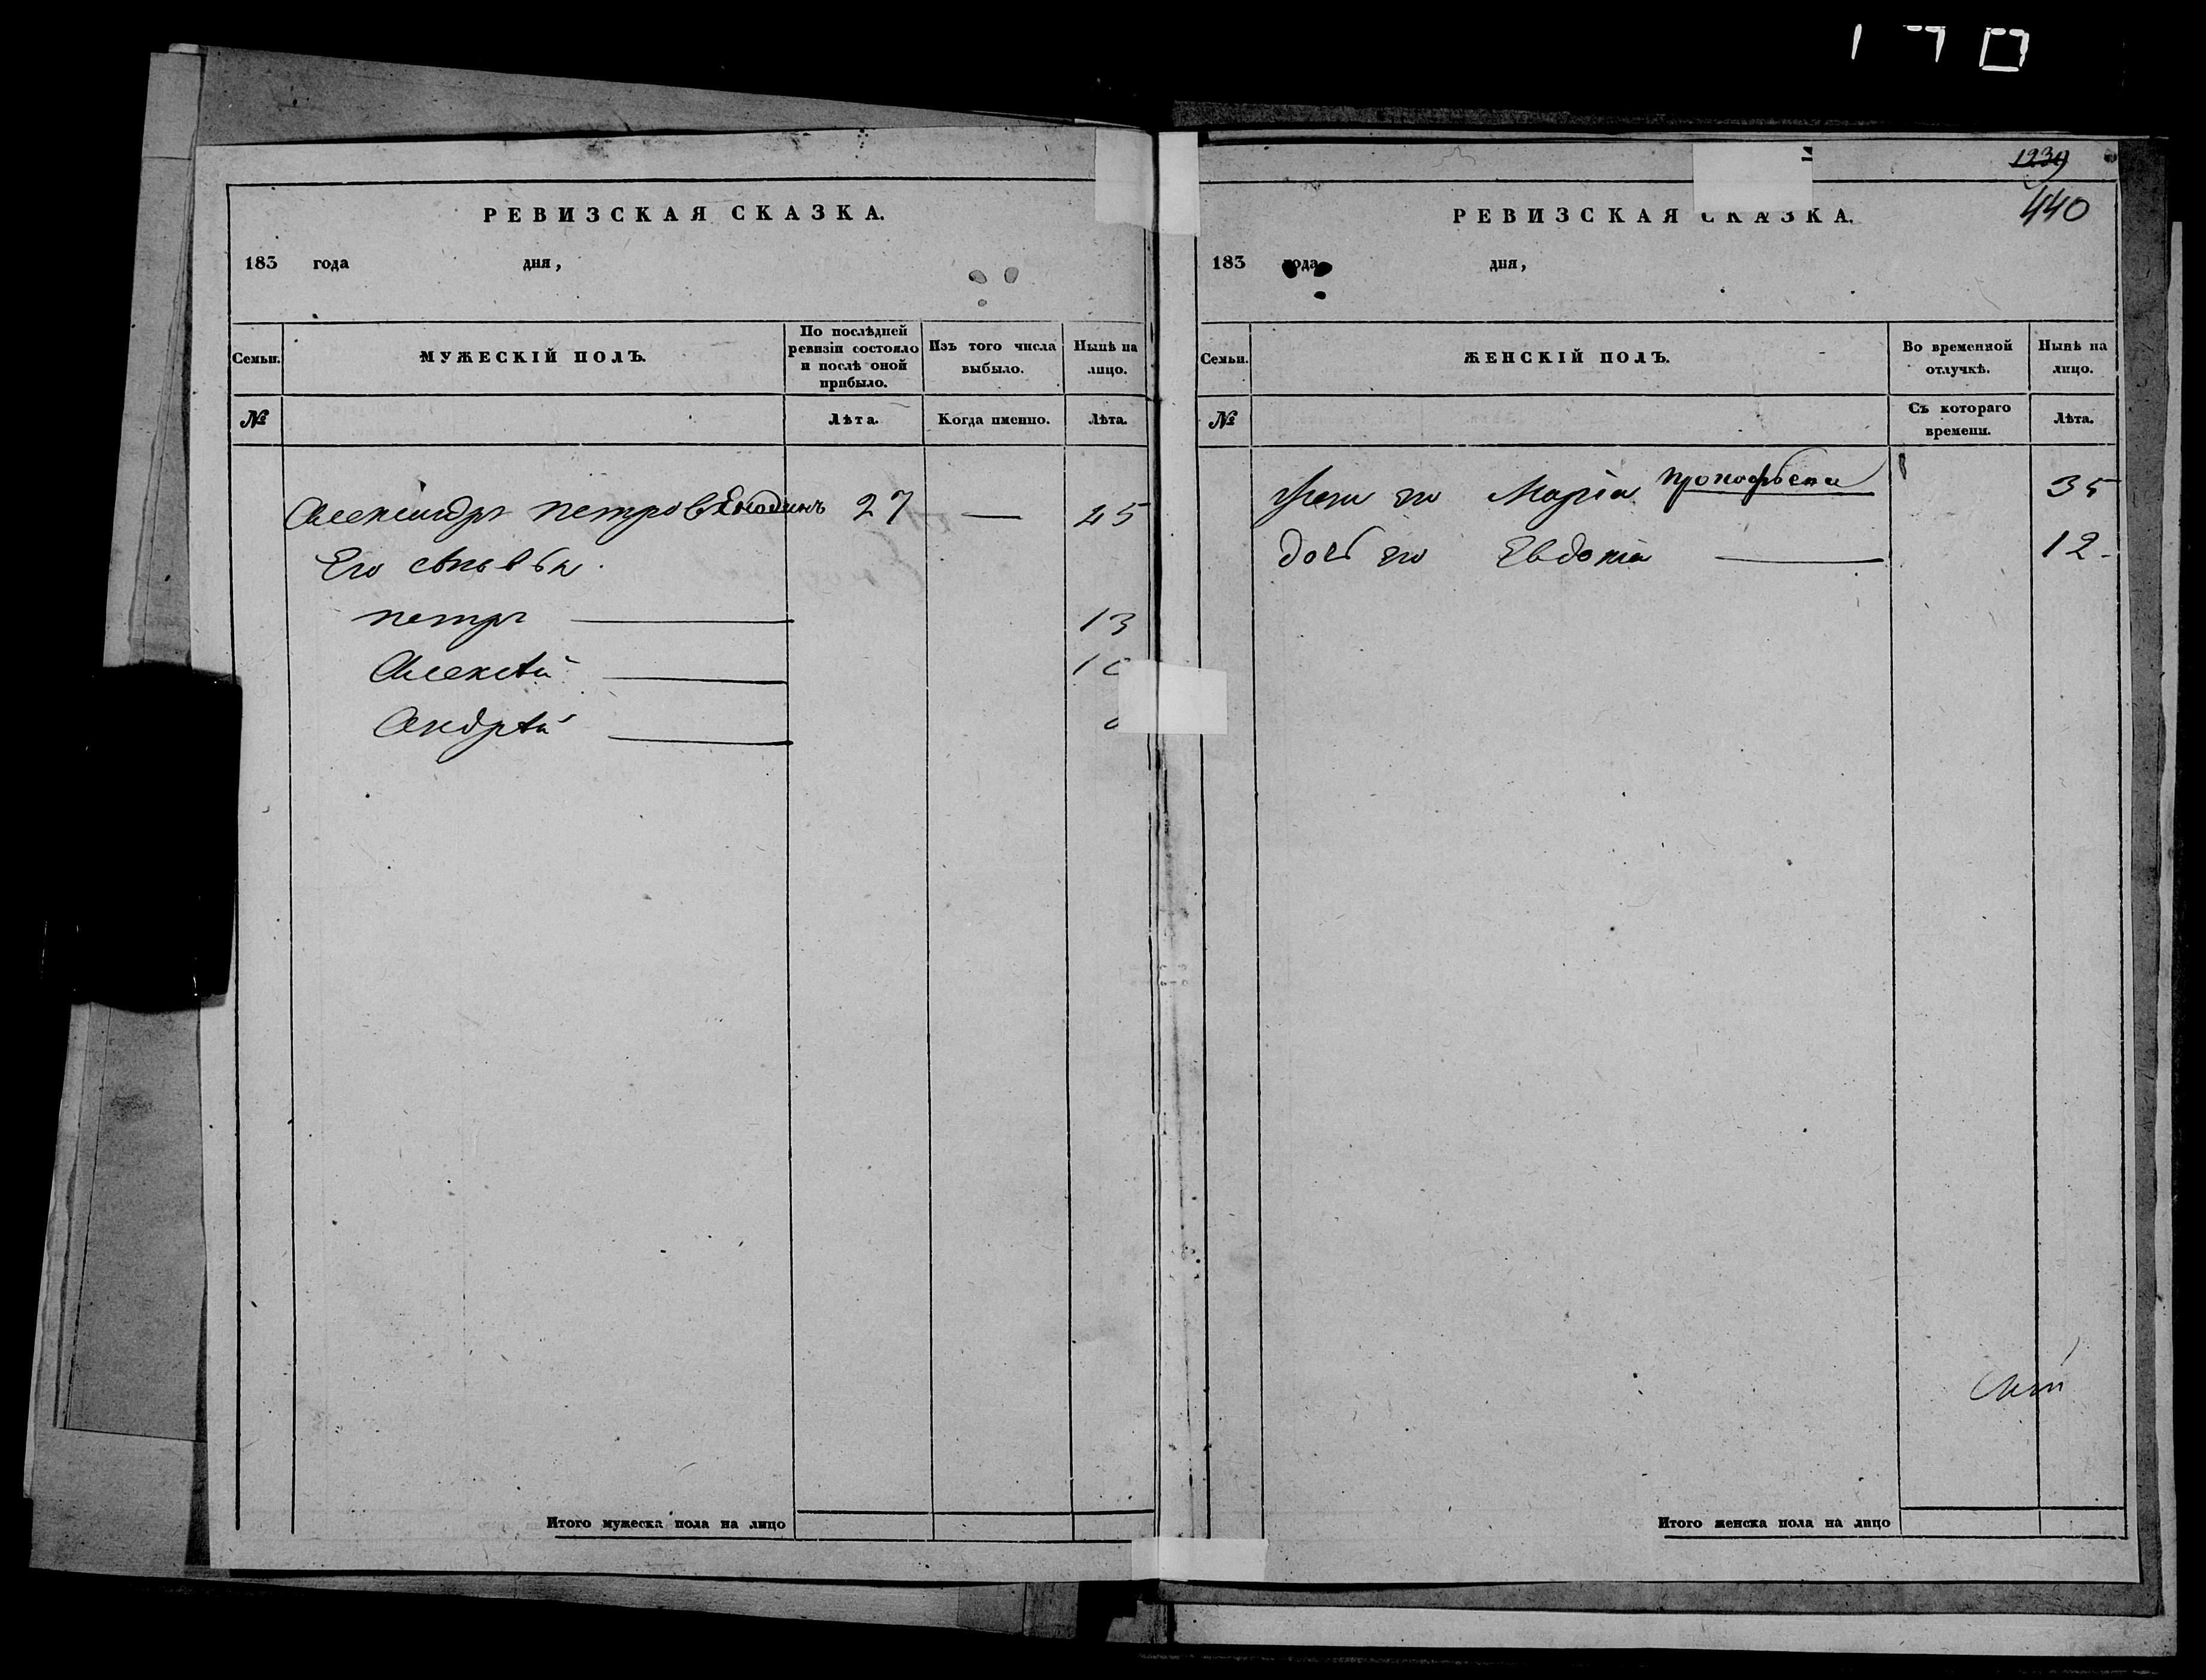 170
1239
440
РЕВИЗСКАЯ СКАЗКА.
183 года дня,
Семьи.
МУЖЕСКІЙ ПОЛЪ.
По послѣдней ревизіи состояло и послѣ оной прибыло.
Изъ того числа выбыло.
Нынѣ на лицо.
№
Лѣта.
Когда именно.
Лѣта.
Александръ Петров 27 — 45
Его сыновья
петръ 13
Алексѣй
Андрѣй
Итого мужеска пола на лицо
РЕВИЗСКАЯ СКАЗКА.
183 года дня,
Семьи.
ЖЕНСКІЙ ПОЛЪ.
Во временной отлучкѣ.
Нынѣ на лицо.
№
Съ котораго времени.
Лѣта.
Жена его Марія Прокофьева 35
дочь его Евдокія 12
Итого женска пола на лицо